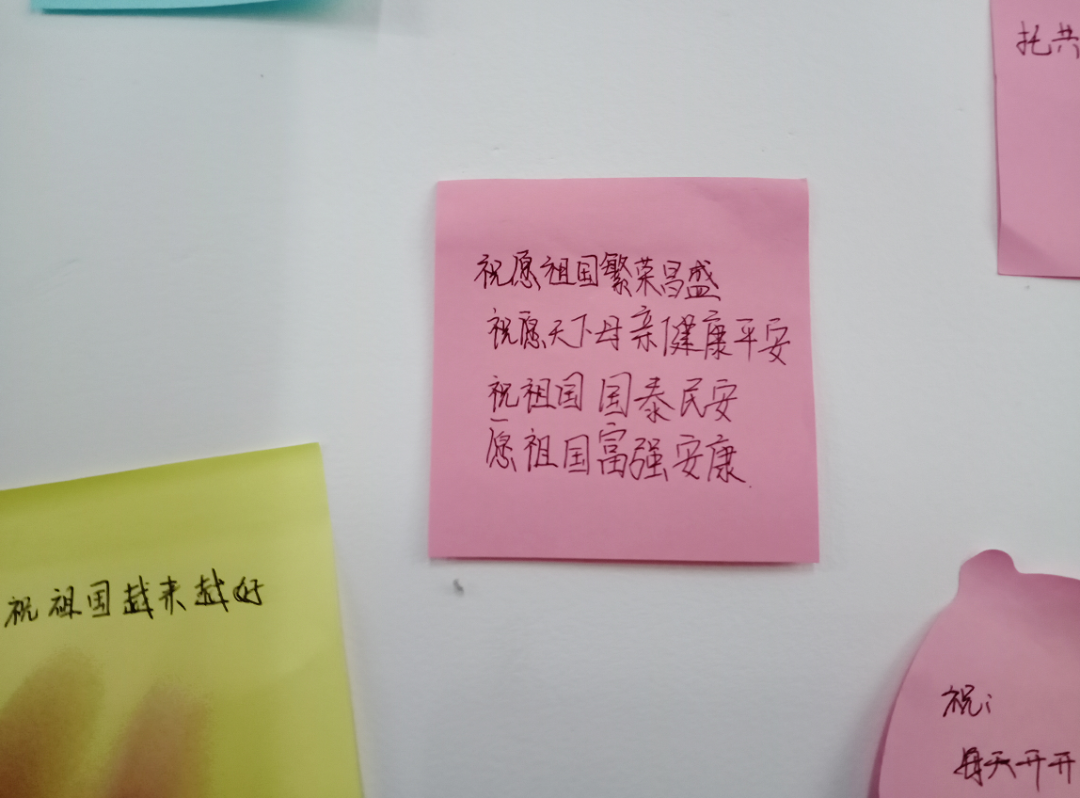 托共
祝愿祖国繁荣昌盛
祝愿天下母亲健康平安
祝祖国国泰民安
愿祖国富强安康
祝祖国越来越好
祝:
每天开开